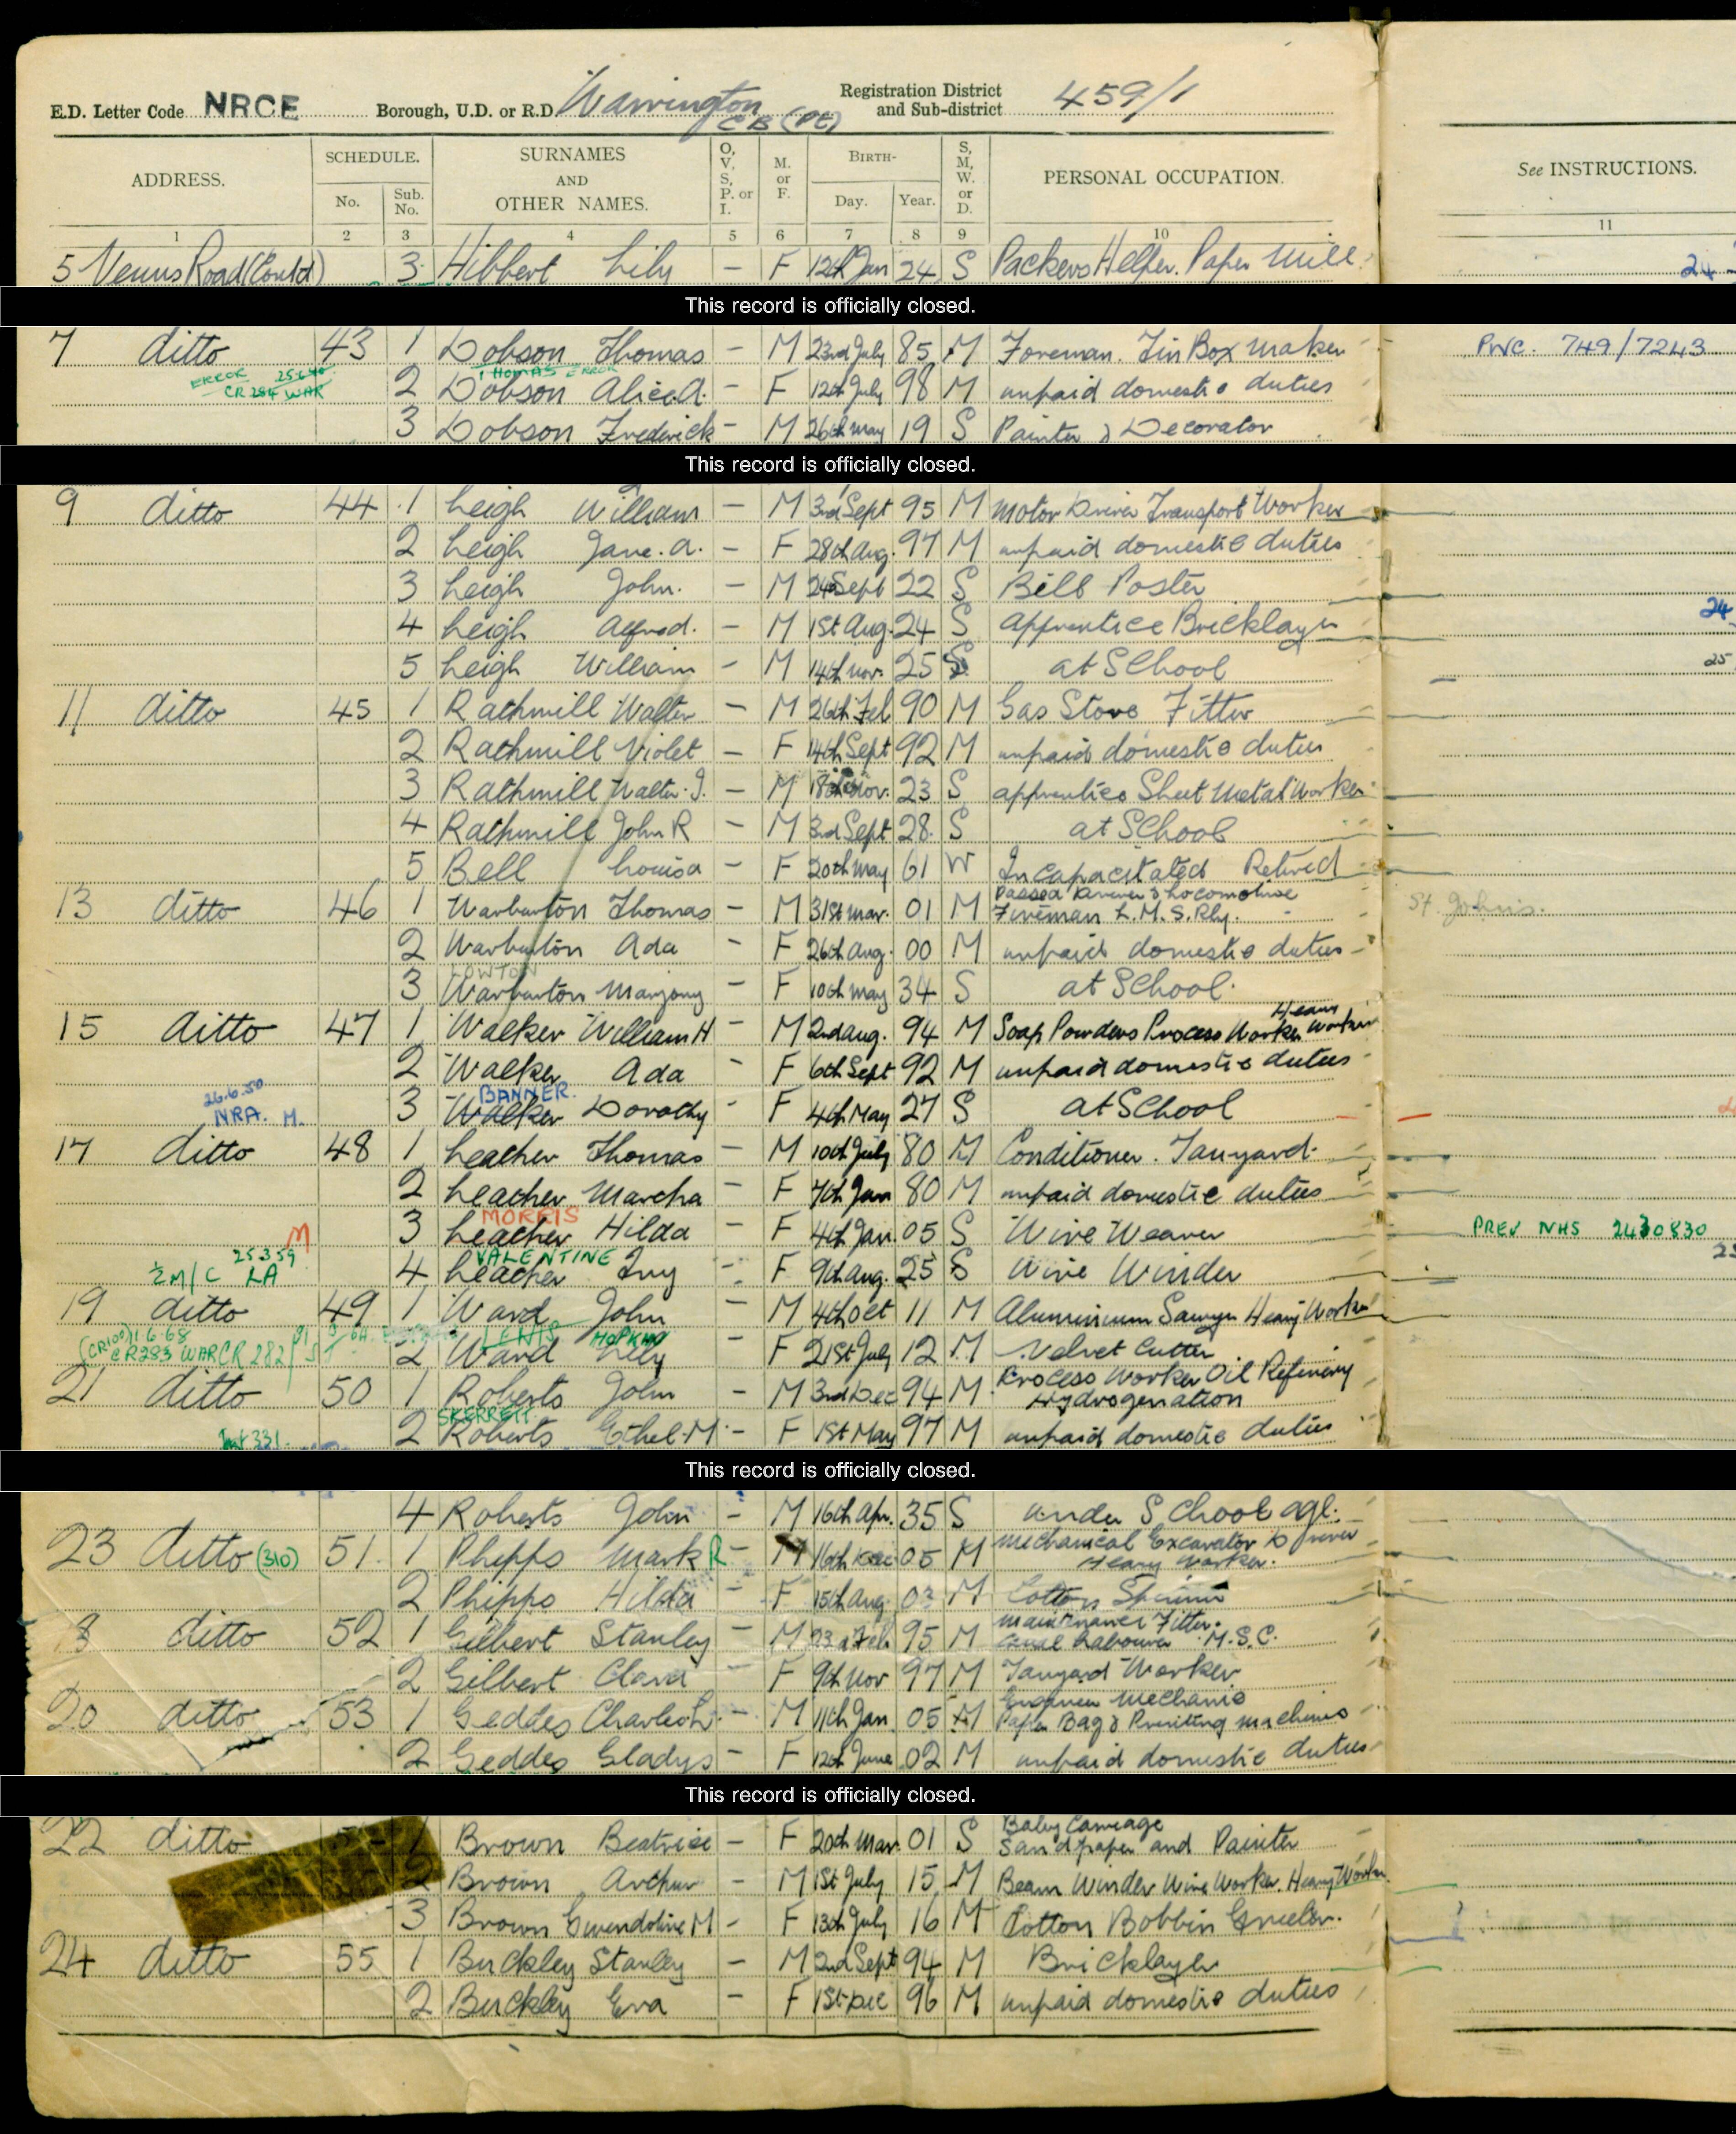 E.D. Letter Code NRCE Borough, U.D. or R.D. Warrington C B (PE) Registration District and Sub-district 459/1
ADDRESS. SCHEDULE. No. Sub. No. SURNAMES AND OTHER NAMES. O, V, S, P. or I. M. or F. BIRTH- Day. Year. S, M, W. or D. PERSONAL OCCUPATION. See INSTRUCTIONS.
1 2 3 4 5 6 7 8 9 10 11
5 Venus Road (Contd) 3 Hibbert Lily - F 12th Jan 24 S Packers Helper. Paper Mill. 24
This record is officially closed.
7 ditto 43 1 Dobson Thomas - M 23rd July 85 M Foreman. Tin Box maker PWC. 749/7243
ERROR THOMAS ERROR
CR 284 WAR 2 Dobson Alice.A. - F 12th July 98 M unpaid domestic duties
3 Dobson Frederick - M 26th May 19 S Painter & Decorator
This record is officially closed.
9 ditto 44 1 Leigh William - M 3rd Sept 95 M Motor Driver Transport Worker
2 Leigh Jane. A. - F 28th Aug. 97 M unpaid domestic duties
3 Leigh John. - M 24 Sept 22 S Bill Poster
4 Leigh Alfred. - M 1st Aug. 24 S apprentice Bricklayer 24
5 Leigh William - M 14th Nov. 25 S at School 25
11 ditto 45 1 Rathmill Walter - M 26th Feb 90 M Gas Stove Fitter
2 Rathmill Violet - F 14th Sept 92 M unpaid domestic duties
3 Rathmill Walter. J. - M 18th Nov. 23 S apprentice Sheet Metal Worker
4 Rathmill John R - M 3rd Sept 28. S at School
5 Bell Louisa - F 20th May 61 W Incapacitated Retired
13 ditto 46 1 Warburton Thomas - M 31st Mar. 01 M Passed Driver & Locomotive Fireman L.M.S. Rly. St. Johns.
2 Warburton Ada - F 26th Aug. 00 M unpaid domestic duties
LOWTON
3 Warburton Marjory - F 10th May 34 S at School.
15 ditto 47 1 Walker William H - M 2nd Aug. 94 M Soap Powders Process Worker Heavy Worker
2 Walker Ada F 6th Sept 92 M unpaid domestic duties
26.6.50 BANNER.
NRA. M. 3 Walker Dorothy - F 4th May 27 S at School
17 ditto 48 1 Leather Thomas - M 10th July 80 M Conditioner. Tanyard.
2 Leather Martha - F 7th Jan 80 M unpaid domestic duties
MORRIS
M 3 Leather Hilda - F 4th Jan 05 S Wire Weaver PREV NHS 2430830
25.3.59 VALENTINE
½M/C LA 4 Leather Ivy - F 9th Aug. 25 S Wire Winder
19 ditto 49 1 Ward John - M 4th Oct 11 M Aluminium Sawyer Heavy Worker
(CR100) 1.6.68 LEWIS
CR283 WAR CR 282 2 Ward Lily F 21st July 12 M Velvet Cutter
21 ditto 50 1 Roberts John - M 3rd Dec 94 M Process Worker Oil Refinery Hydrogenation
SKERRETT
331. 2 Roberts Ethel. M. - F 1st May 97 M unpaid domestic duties
This record is officially closed.
4 Roberts John - M 16th Apr. 35 S under School age.
23 ditto (310) 51. 1 Phipps Mark R - M 16th Dec 05 M Mechanical Excavator Driver Heavy Worker.
2 Phipps Hilda - F 15th Aug. 03 M Cotton Spinner
8 ditto 52 1 Gilbert Stanley - M 23rd Feb 95 M Maintnance Fitter. Labourer M.S.C.
2 Gilbert Clara - F 9th Nov 97 M Tanyard Worker
20 ditto 53 1 Geddes Charles L. - M 11th Jan 05 M Engineer Mechanic Paper Bag & Printing machines
2 Geddes Gladys - F 12th June 02 M unpaid domestic duties
This record is officially closed.
22 ditto 1 Brown Beatrice - F 20th Mar. 01 S Baby Carriage Sandpaper and Painter
2 Brown Arthur - M 1st July 15 M Beam Winder Wire Worker. Heavy Worker.
3 Brown Gwendoline M - F 13th July 16 M Cotton Bobbin
24 ditto 55 1 Buckley Stanley - M 2nd Sept 94 M Bricklayer
2 Buckley Eva - F 1st Dec 96 M unpaid domestic duties